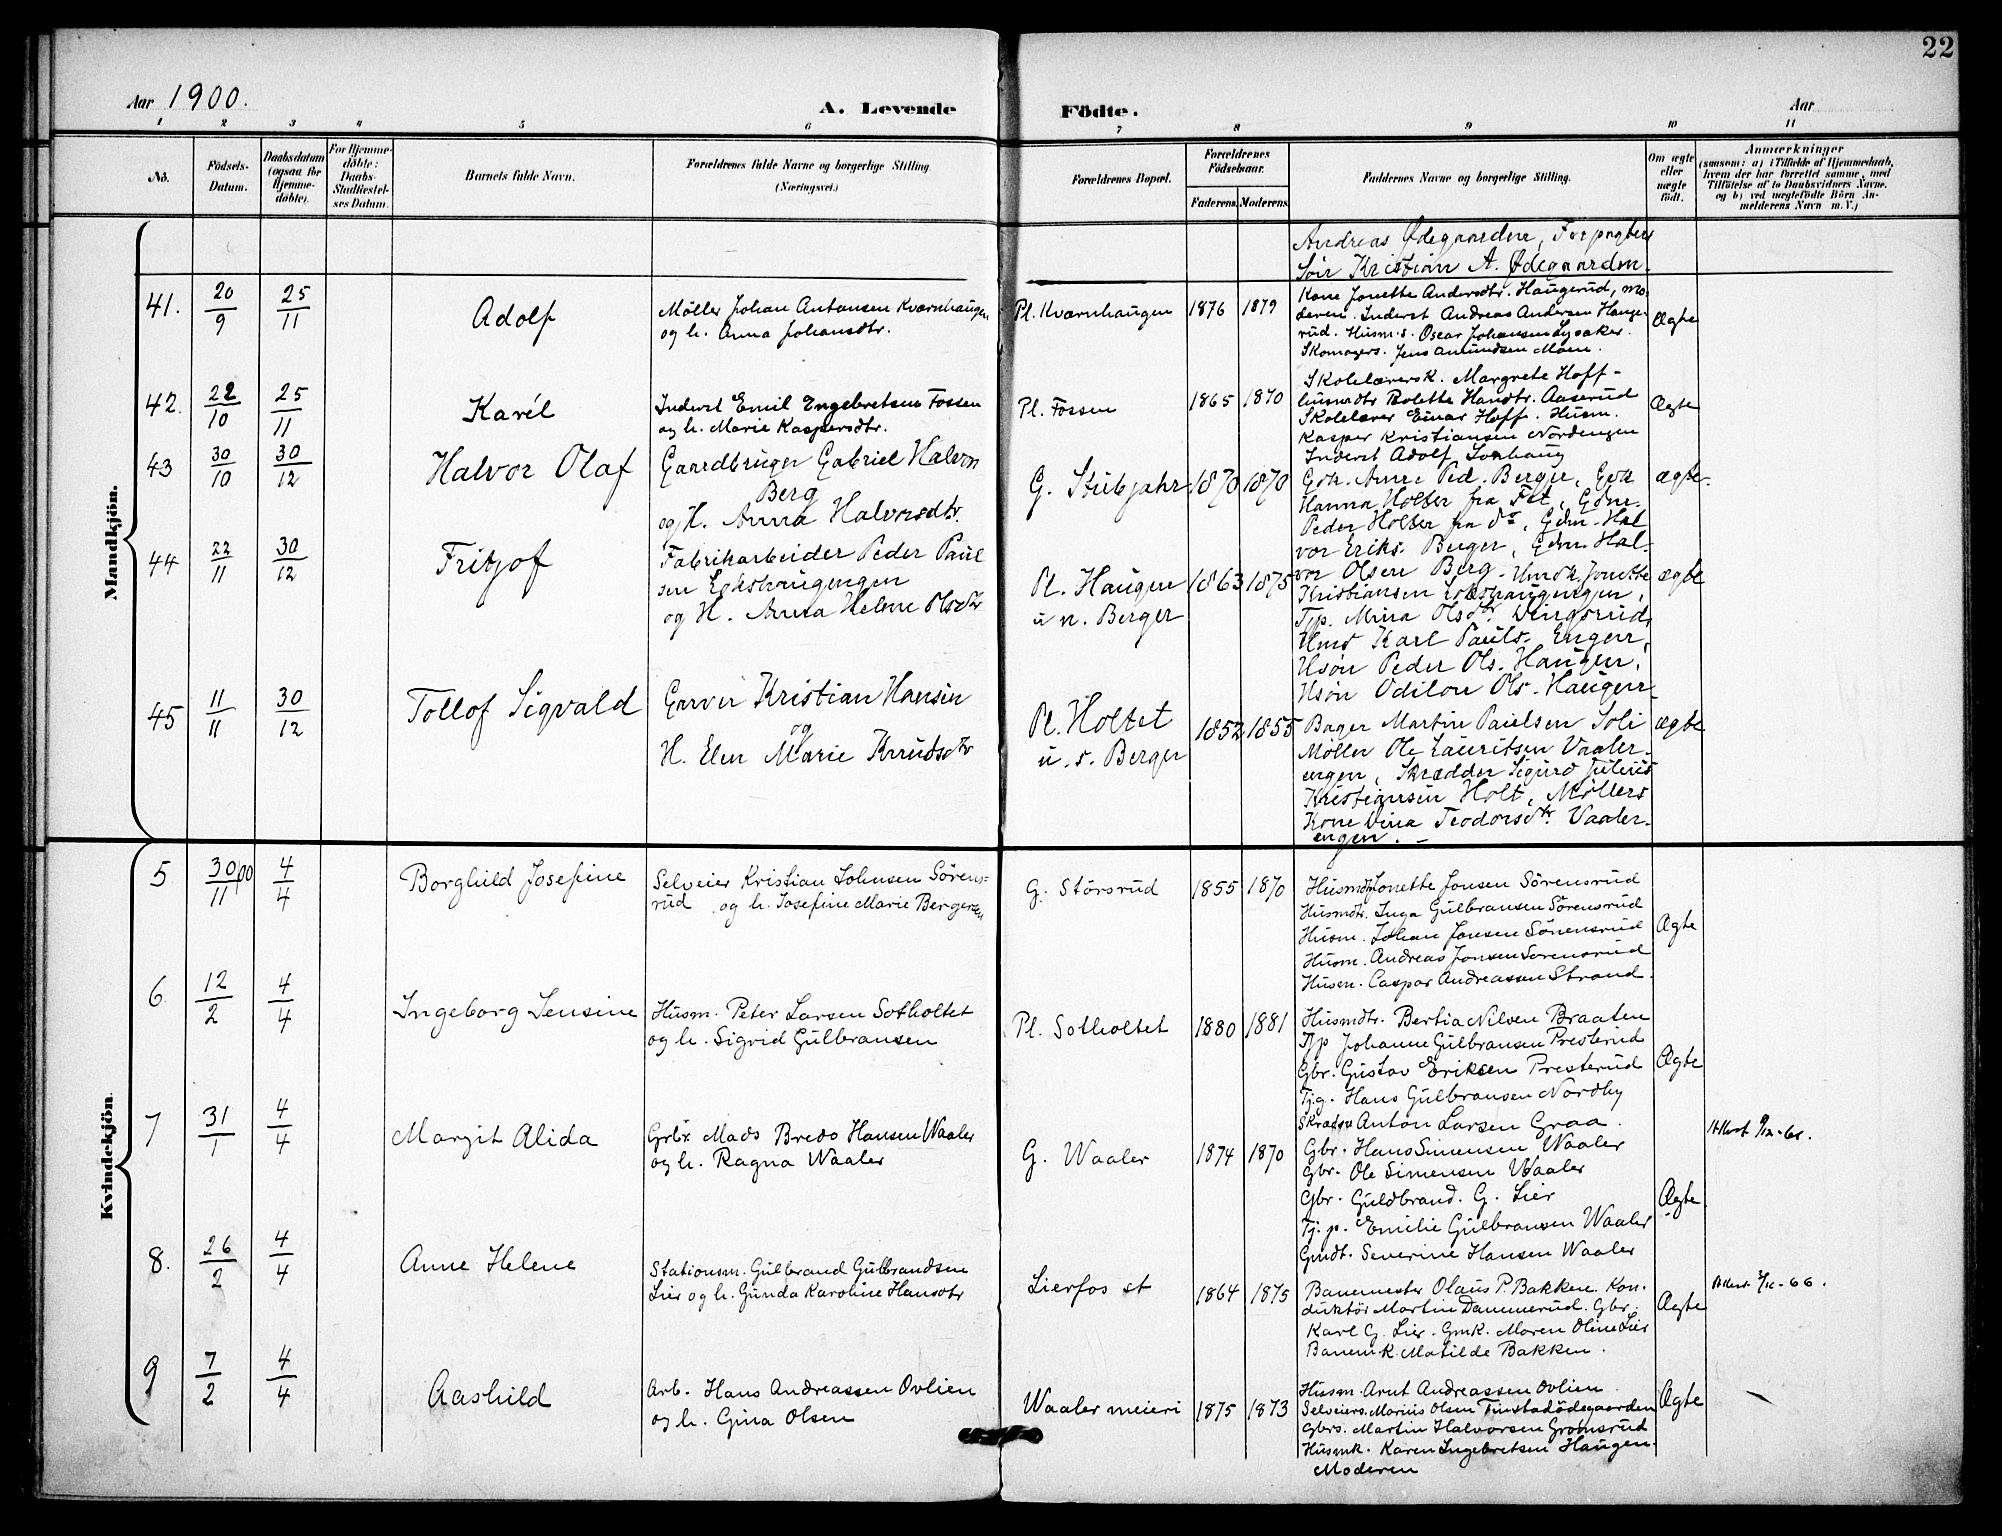 22
Aar 1900.
A. Levende
Födte.
Aar
1 2 3 4 5 6 7 8 9 10 11
No.
Födsels-Datum.
Daabsdatum (ogsaa for Hjemme-döbte).
For Hjemme-döbte: Daabs-Stadfæstel-ses Datum.
Barnets fulde Navn.
Forældrenes fulde Navne og borgerlige Stilling.
(Næringsvei.)
Forældrenes Bopæl.
Forældrenes Födselsaar.
Faderens. Moderens.
Faddernes Navne og borgerlige Stilling.
Om ægte eller uægte födt.
Anmærkninger
(saasom: a) i Tilfælde af Hjemmedaab,
hvem der har forrettet samme, med
Tilföielse af to Daabsvidners Navne.
og b) ved uægtefödte Börn An-
melderens Navn m. V.)
Mandkjön.
Andreas Ødegaarden, Forpagter
Søir Kristian A. Ødegaarden.
41. 20/9 25/11 Adolf
Møller Johan Antonsen Kværnhaugen
og h. Anna Johansdtr.
Pl. Kværnhaugen 1876 1879
Kone Jonette Andersdtr. Haugerud, mo-
deren. Inderst Andreas Andersen Hauge-
rud. Husm.s. Oscar Johansen Lysaker.
Skomagers. Jens Amundsen Moen.
Ægte
42. 22/10 25/11 Karél
Inderst Emil Engebretsen Fossen
og h. Marie Kaspersdtr.
Pl. Fossen 1865 1870
Skolelærersk. Margrete Hoff-
Hansdtr. Aaserud
Skolelærer Einar Hoff. Husm.
Kasper Kristiansen Nordengen
Inderst Adolf
Ægte
43 30/10 30/12 Halvor Olaf
Gaardbruger Gabriel Halvors
Berg
og H. Anna Halvorsdtr.
G. Stubjahr 1870 1870
Gdk. Anne Ped. Berger, Gdk
Hanna Holter fra Fet, Gdm.
Peder Holter fra do, Gdm. Hal
vor Eriks. Berger, Gdm. Hal-
vor Olsen Berg.
ægte.
44 22/11 30/12 Fritjof
Fabrikarbeider Peder Paul
sen
og H. Anna Helene Olsdtr
Pl. Haugen
u n. Berger
1863 1875
Hmdk. Jonette
Kristiansen
Tjp. Mina Olsdtr. Dingsrud,
Hmd Karl Pauls. Engen,
Hsøn Peder Ols. Haugen,
Hsøn Odilon Ols. Haugen
ægte
45 11/11 30/12 Tollof Sigvald
Garver Kristian Hansen
og
H. Elen Marie Knudsdtr
Pl. Holtet
u. s. Berger
1852 1855
Bager Martin Paulsen Soli
Møller Ole Lauritsen Vaaler-
engen, Skrædder Sigurd Julius
Kristiansen Holt, Møllers
Kone Teodorsdtr. Vaaler-
engen.
ægte
Kvindekjön.
5 30/11 00 4/4 Borghild Josefine
Selveier Kristian Johnsen Sörens-
rud og h. Josefine Marie Bergersen
G. Störsrud 1855 1870
Husmdtr Jonette Jonsen Sörensrud
Husmdtr. Inga Gulbransen Sörensrud
Husm. Johan Jonsen Sörensrud
Husm. Andreas Jonsen Sörensrud
Husm. Caspar Andreassen Strand.
Ægte
6. 12/2 4/4 Ingeborg Jensine
Husm. Peter Larsen Sotholtet
og h. Sigrid Gulbransen
Pl. Sotholtet 1880 1881
Husmdtr. Bertia Nilsen Braaten
Tjp Johanne Gulbransen Presterud
Gbr. Gustav Eriksen Presterud
Tj.g. Hans Gulbransen Nordby
Skrædder Anton Larsen Graa.
Ægte
7 31/1 4/4 Margit Alida
Grbr. Mads Bredo Hansen Waaler
og h. Ragna Waaler
G. Waaler 1874 1870
Gbr. Hans Simensen Waaler
Gbr. Ole Simensen Waaler
Gbr. Guldbrand. G. Lier
Tj.p. Emilie Gulbransen Waaler
Gmdt. Severine Hansen Waaler
Ægte
8. 26/2 4/4 Anne Helene
Stationsm. Gulbrand Gulbrandsen
Lier og h. Gunda Karoline Hansdtr
Lierfos st 1864 1875
Banemester Olaus P. Bakken. Kon-
duktör Martin Dammerud. Gbr.
Karl G. Lier. Gmk. Maren Oline Lier
Banem.k. Matilde Bakken.
Ægte
9 7/2 4/4 Aashild
Arb. Hans Andreassen Ovlien
og h. Gina Olsen
Waaler meieri 1875 1873
Husm. Arnt Andreassen Ovlien.
Selveiers. Marius Olsen
Gbrs. Martin Halvorsen Gromsrud
Husmk. Karen Ingebretsen Haugen.
Moderen
Ægte